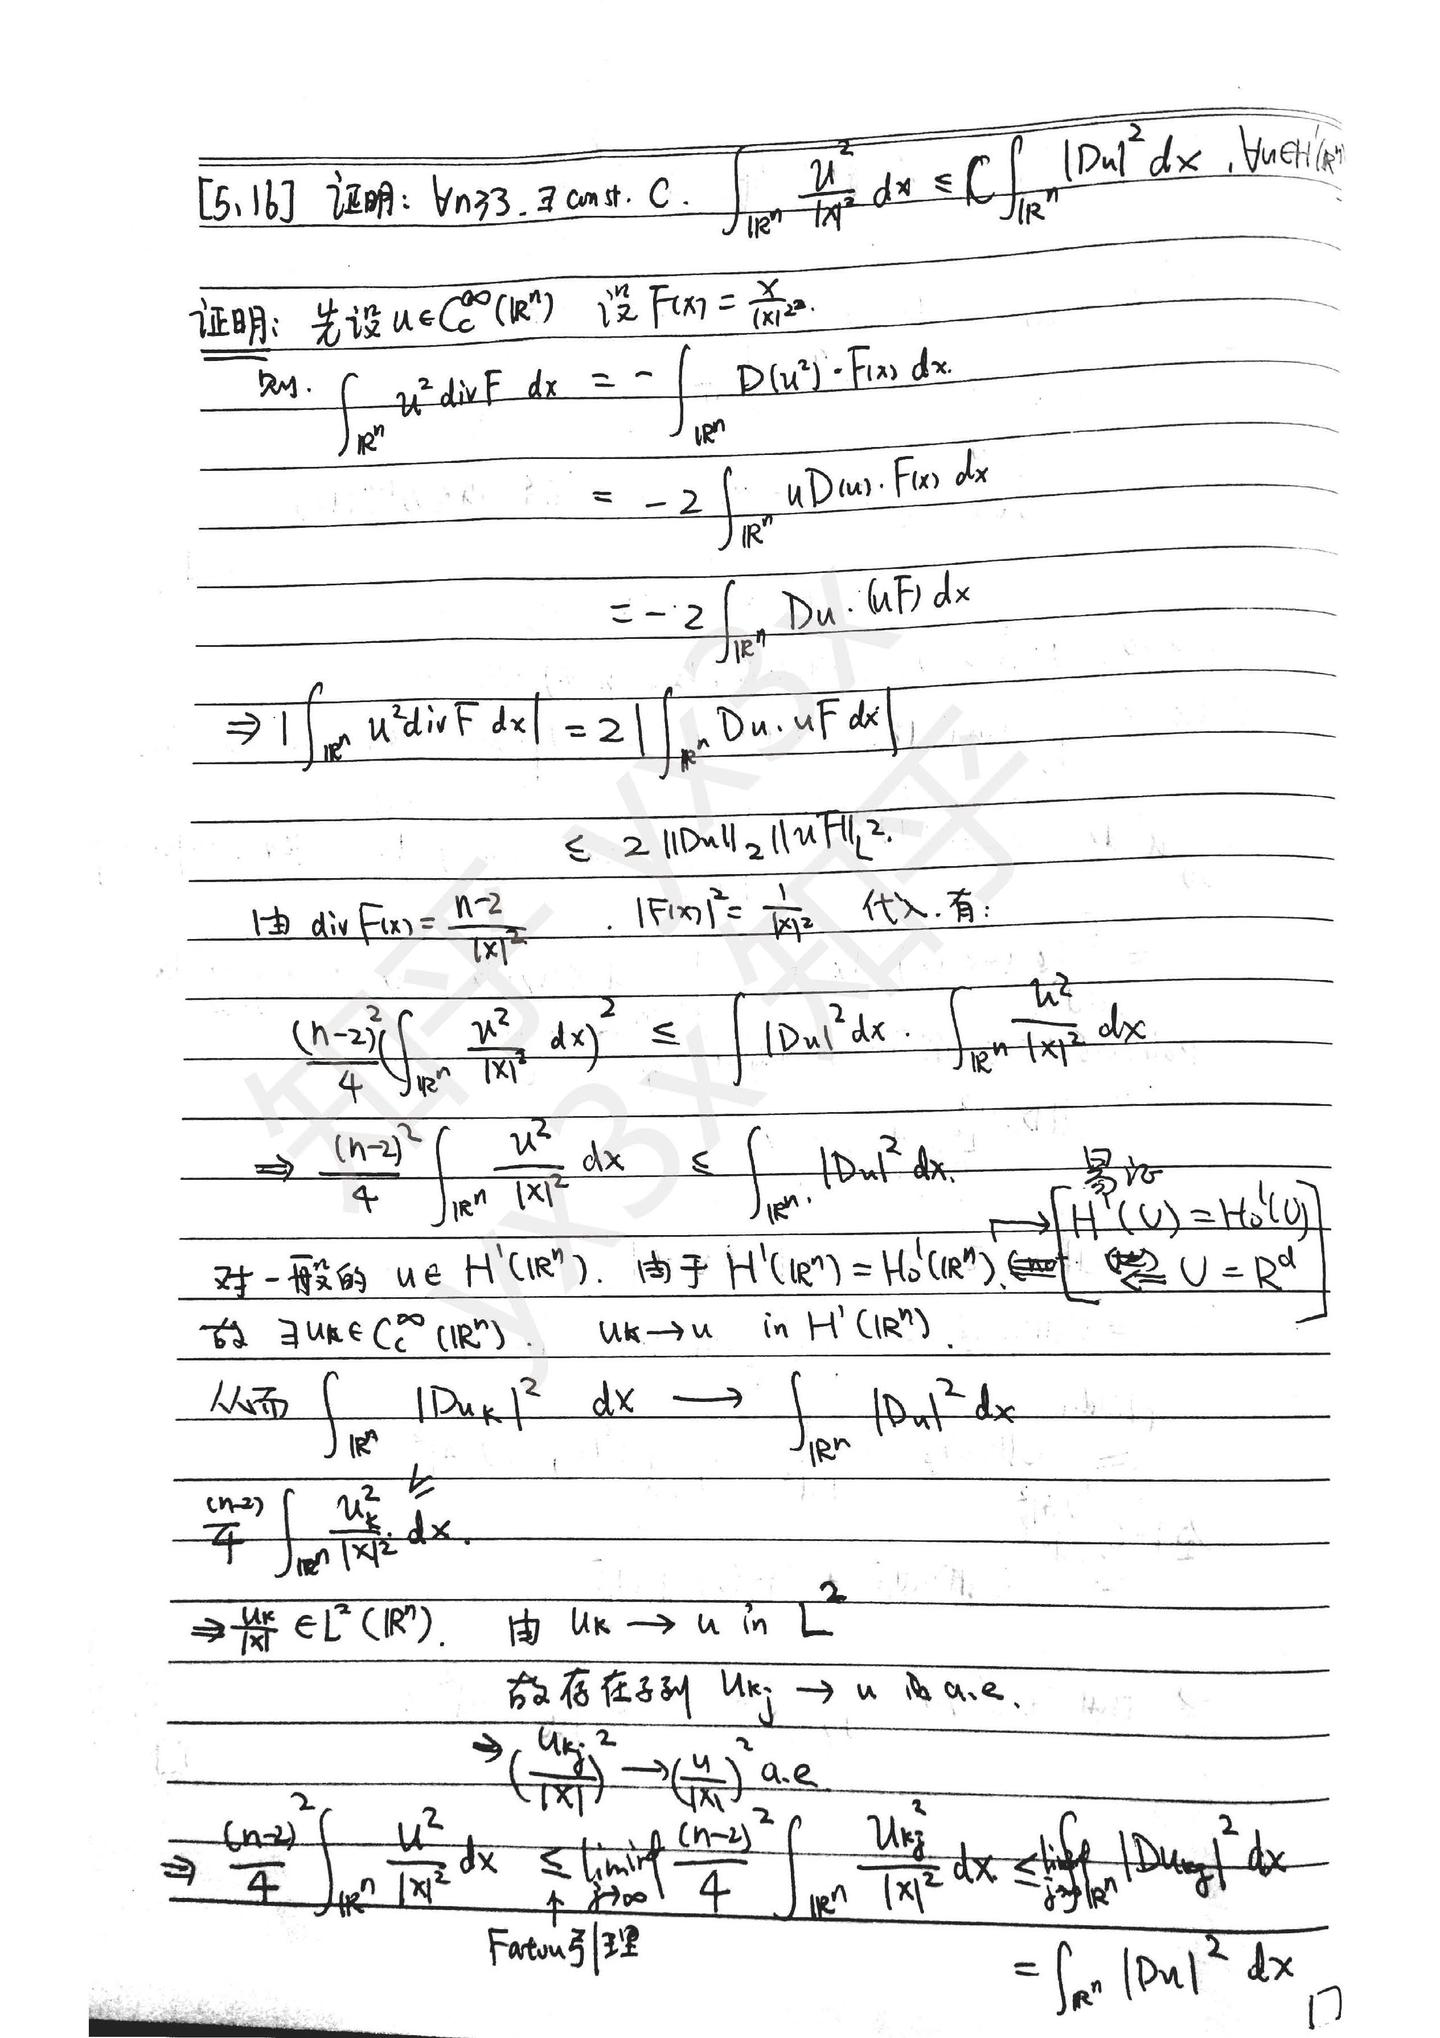 [5.16] 证明: ∀n≥3. ∃ const. C. ∫_{ℝⁿ} u²/|x|² dx ≤ C∫_{ℝⁿ} |Du|² dx, ∀u∈H¹(ℝⁿ)
证明: 先设 u∈C_c^∞(ℝⁿ) 设 F(x) = x/|x|².
则. ∫_{ℝⁿ} u² div F dx = - ∫_{ℝⁿ} D(u²)·F(x) dx.
= -2 ∫_{ℝⁿ} u D(u)·F(x) dx
= -2 ∫_{ℝⁿ} Du·(uF) dx
⇒ |∫_{ℝⁿ} u² div F dx| = 2|∫_{ℝⁿ} Du·uF dx|
≤ 2 ||Du||₂ ||uF||_{L²}.
由 div F(x) = (n-2)/|x|² . |F(x)|² = 1/|x|² 代入.有:
(n-2)²/4 (∫_{ℝⁿ} u²/|x|² dx)² ≤ ∫ |Du|² dx · ∫_{ℝⁿ} u²/|x|² dx
⇒ (n-2)²/4 ∫_{ℝⁿ} u²/|x|² dx ≤ ∫_{ℝⁿ} |Du|² dx.
对一般的 u∈H¹(ℝⁿ). 由于 H¹(ℝⁿ) = H₀¹(ℝⁿ).
→ [H¹(U) = H₀¹(U)
⇐ U = R^d]
故 ∃u_k∈C_c^∞(ℝⁿ). u_k→u in H¹(ℝⁿ).
从而 ∫_{ℝⁿ} |Du_k|² dx → ∫_{ℝⁿ} |Du|² dx
≤
(n-2)/4 ∫_{ℝⁿ} u_k²/|x|² dx.
⇒ u_k/|x| ∈L²(ℝⁿ). 由 u_k → u in L²
故存在子列 u_{k_j} → u a.e.
⇒ (u_{k_j}/|x|)² → (u/|x|)² a.e
⇒ (n-2)²/4 ∫_{ℝⁿ} u²/|x|² dx ≤ liminf_{j→∞} (n-2)²/4 ∫_{ℝⁿ} u_{k_j}²/|x|² dx ≤ liminf_{j→∞} ∫_{ℝⁿ} |Du_{k_j}|² dx
↑
Fatou引理
= ∫_{ℝⁿ} |Du|² dx
□
知乎 yx3x
yx3x 知乎